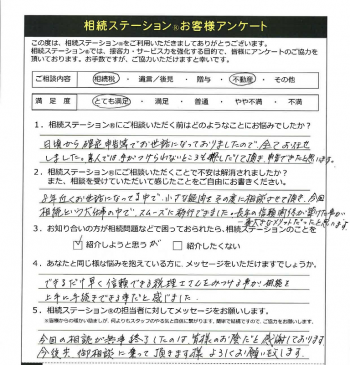 相続ステーション®お客様アンケート
この度は、相続ステーション®をご利用いただきましてありがとうございます。
相続ステーション®では、接客力・サービス力を強化する目的で、皆様にアンケートのご協力を
頂いております。お手数ですが、ご協力いただけますと幸いです。
ご相談内容 相続税 ・ 遺言/後見 ・ 贈与 ・ 不動産 ・ その他
満足度 とても満足 ・ 満足 ・ 普通 ・ やや不満 ・ 不満
1. 相続ステーション®にご相談いただく前はどのようなことにお悩みでしたか?
日頃から確定申告等でお世話になっておりましたので、全てお任せ
しました。
2. 相続ステーション®にご相談いただくことで不安は解消されましたか?
また、相続を受けていただいて感じたことをご自由にお書きください。
8年近くお世話になってる中で、小さな疑問もその度に相談させて頂き、今回
相続という大仕事の中で、スムーズに移行できました。長年の信頼関係が
3. お知り合いの方が相続問題などで困っておられたら、相続ステーション®のことを
紹介しようと思うが 紹介したくない
4. あなたと同じ様な悩みを抱えている方に、メッセージをいただけますでしょうか。
できるだけ早く信頼できる税理士さんをみつける事が相続を
上手に手続きできる事だと感じました。
5. 相続ステーション®の担当者に対してメッセージをお願いします。
今回の相続が無事終了したのは皆様のお陰だと感謝しております
今後共御相談に乗って頂きます様よろしくお願い致します。